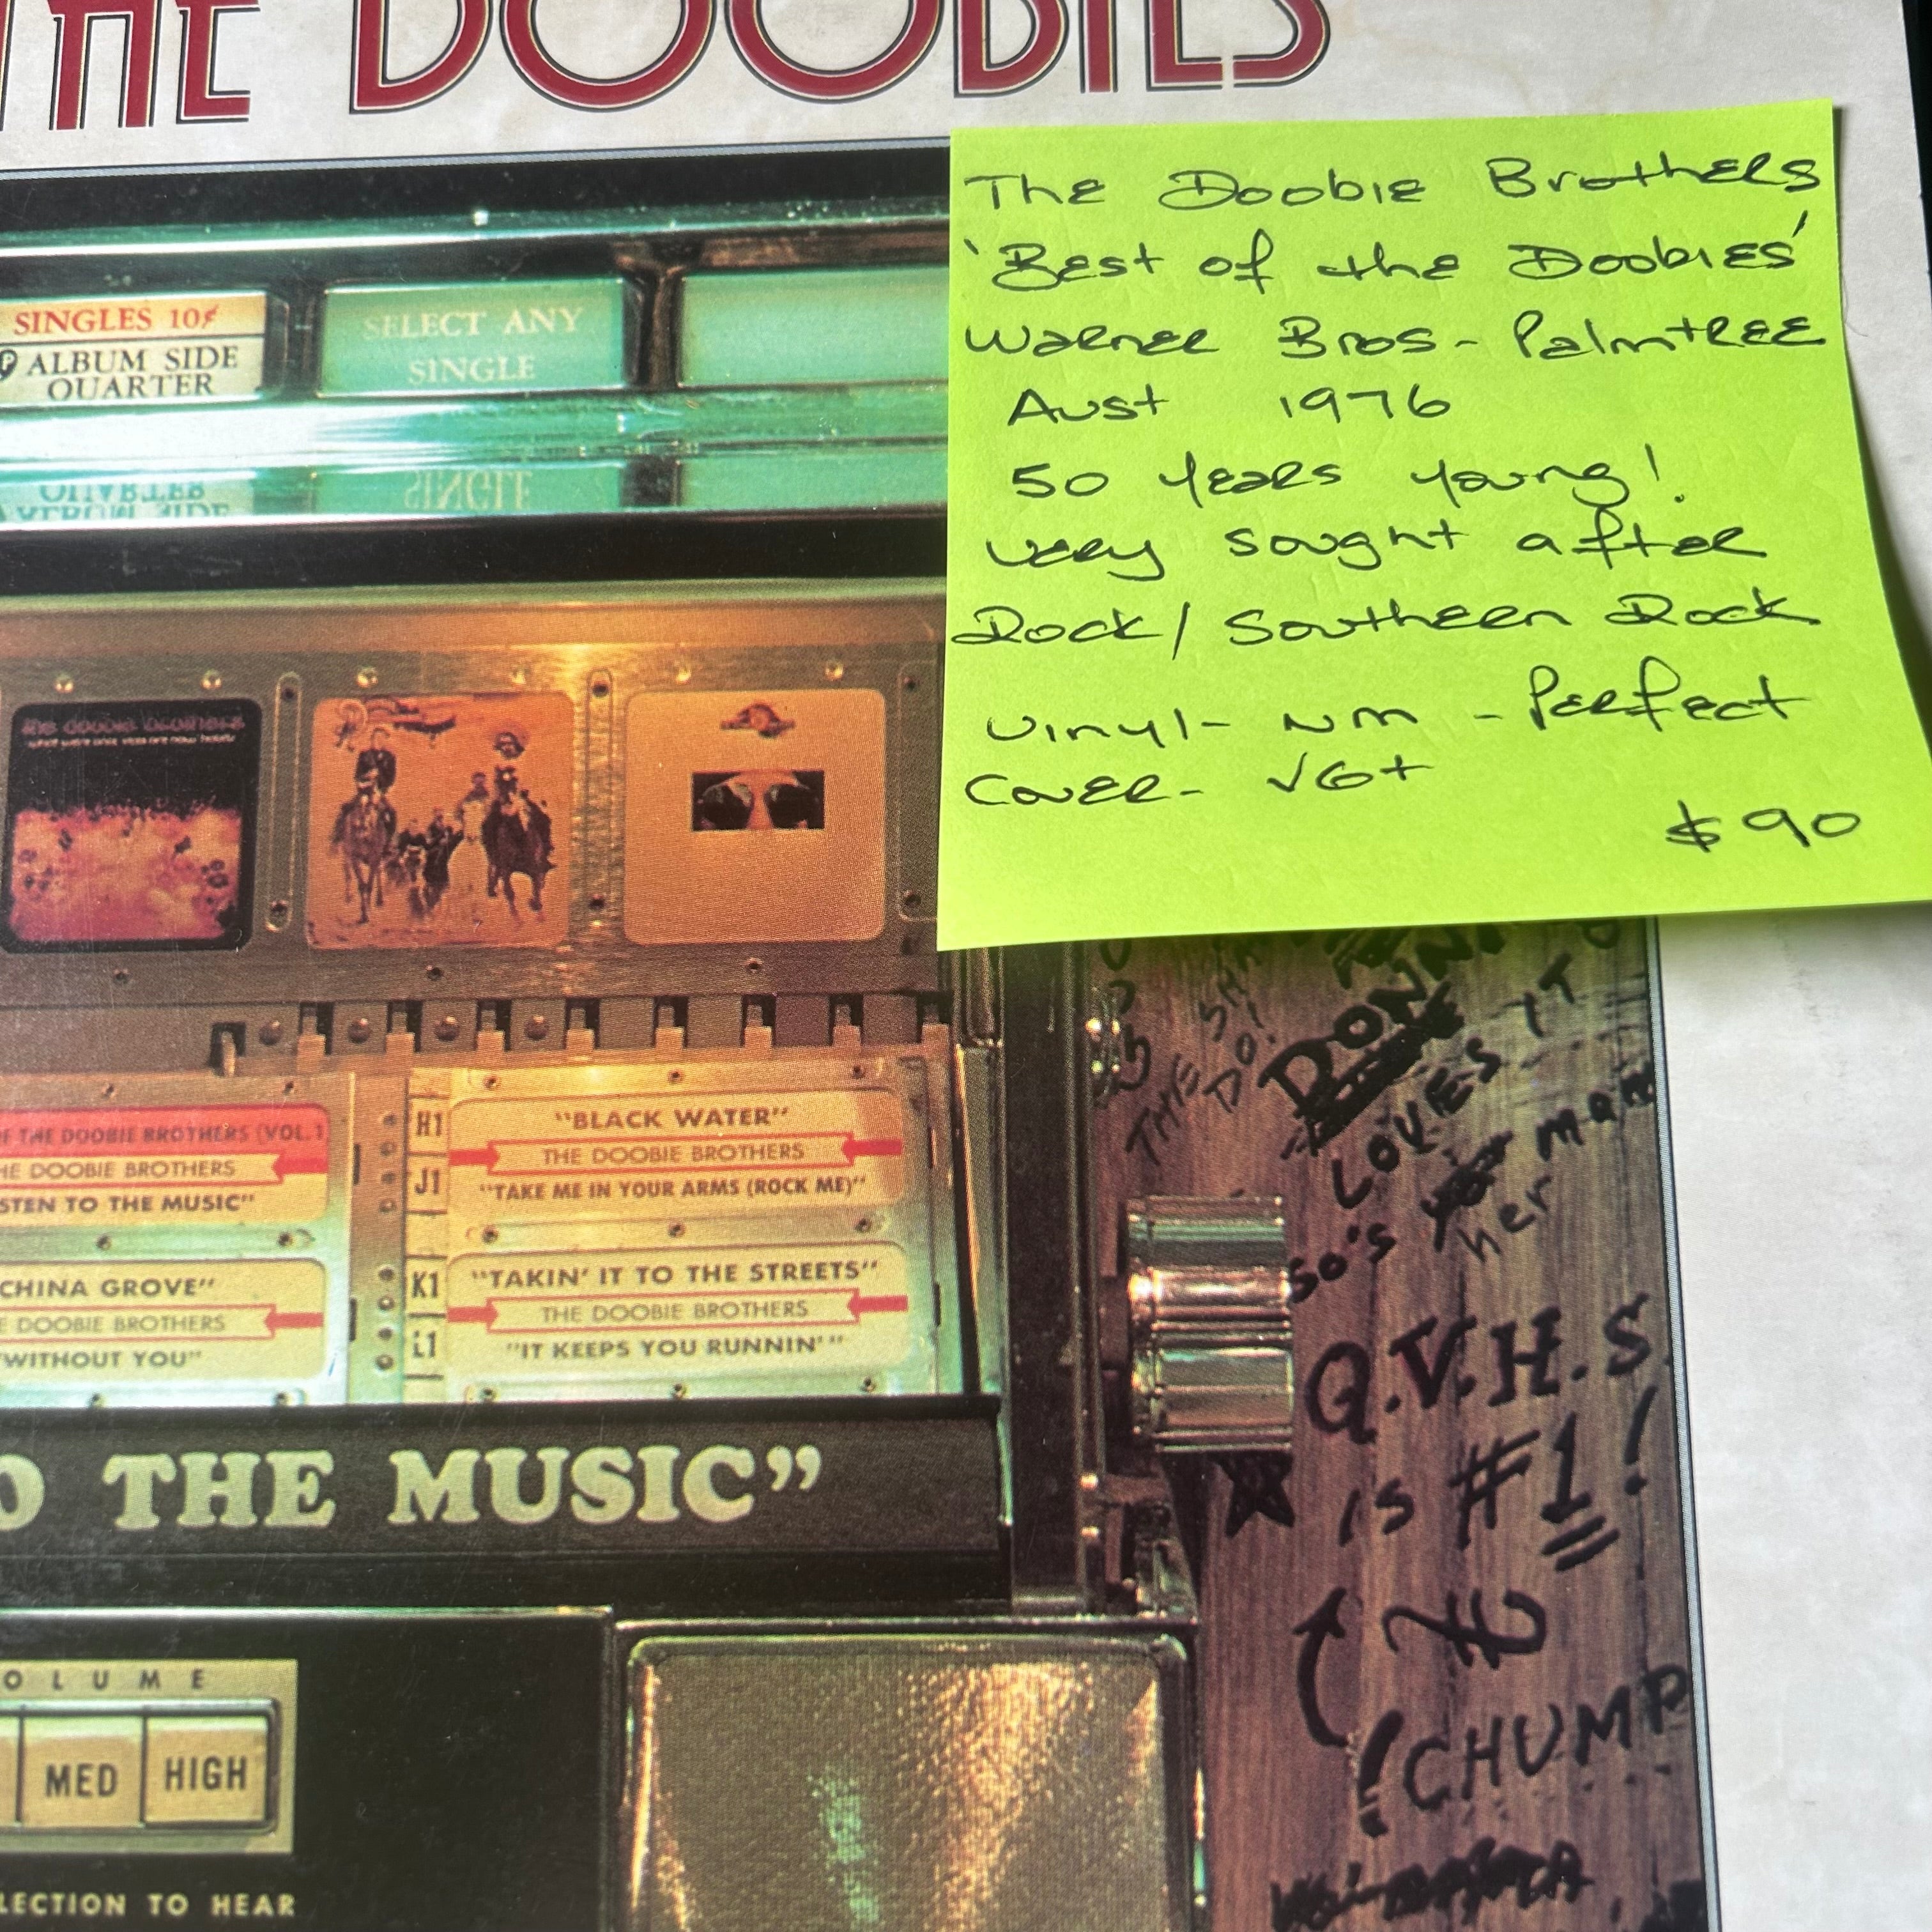 THE DOOBIES
SINGLES 10¢
ALBUM SIDE
QUARTER
SELECT ANY
SINGLE
The Doobie Brothers
'Best of the Doobies'
Warner Bros - Palmtree
Aust 1976
50 years young!
Very sought after
Rock/Southern Rock
Vinyl - NM - Perfect
Cover - VG+
$90
the doobie brothers
what were once vices are now habits
F THE DOOBIE BROTHERS (VOL. 1
HE DOOBIE BROTHERS
STEN TO THE MUSIC"
CHINA GROVE"
E DOOBIE BROTHERS
"WITHOUT YOU"
H1
"BLACK WATER"
THE DOOBIE BROTHERS
J1
"TAKE ME IN YOUR ARMS (ROCK ME)"
K1
"TAKIN' IT TO THE STREETS"
THE DOOBIE BROTHERS
L1
"IT KEEPS YOU RUNNIN'"
O THE MUSIC"
THE
DO!
LOVES IT
SO'S
her
Q.V.H.S.
is #1!
CHUMP
OLUME
MED
HIGH
LECTION TO HEAR